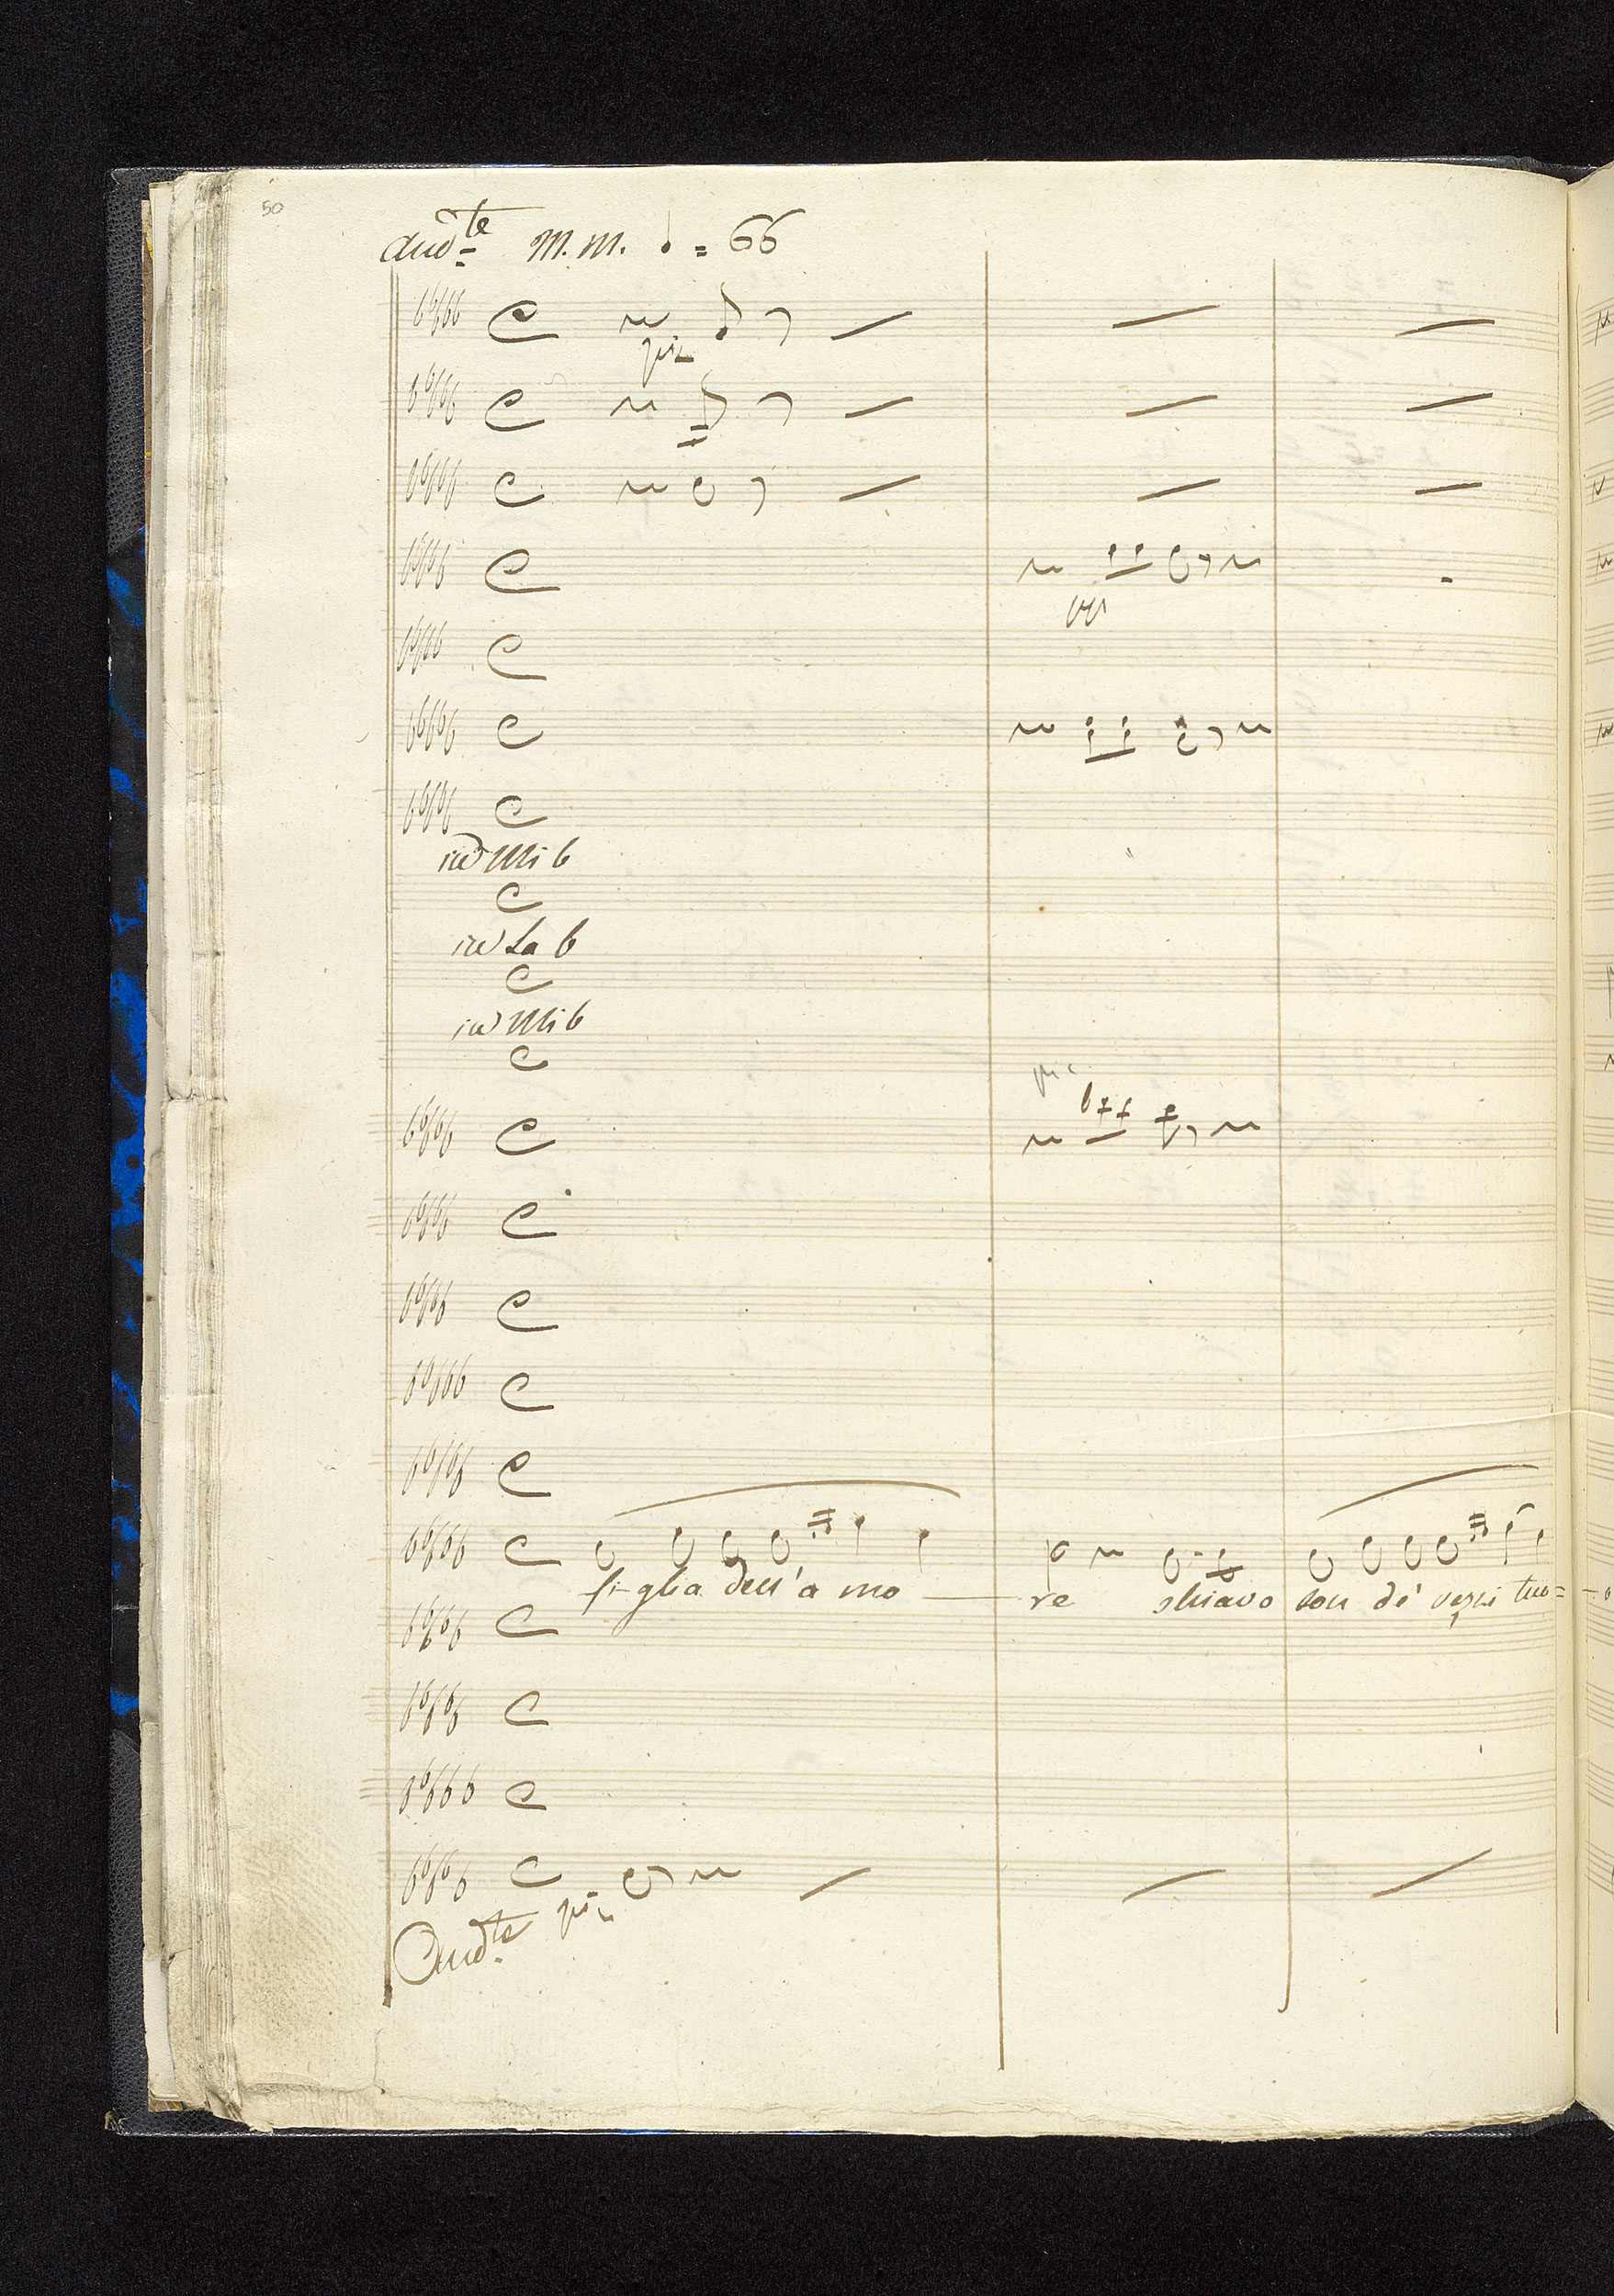 50
And.te M.M. = 66
pia
in Mi b
in La b
in Mi b
fi-glia dell'a mo re schiavo son de' vezzi tuo=
And.te pia